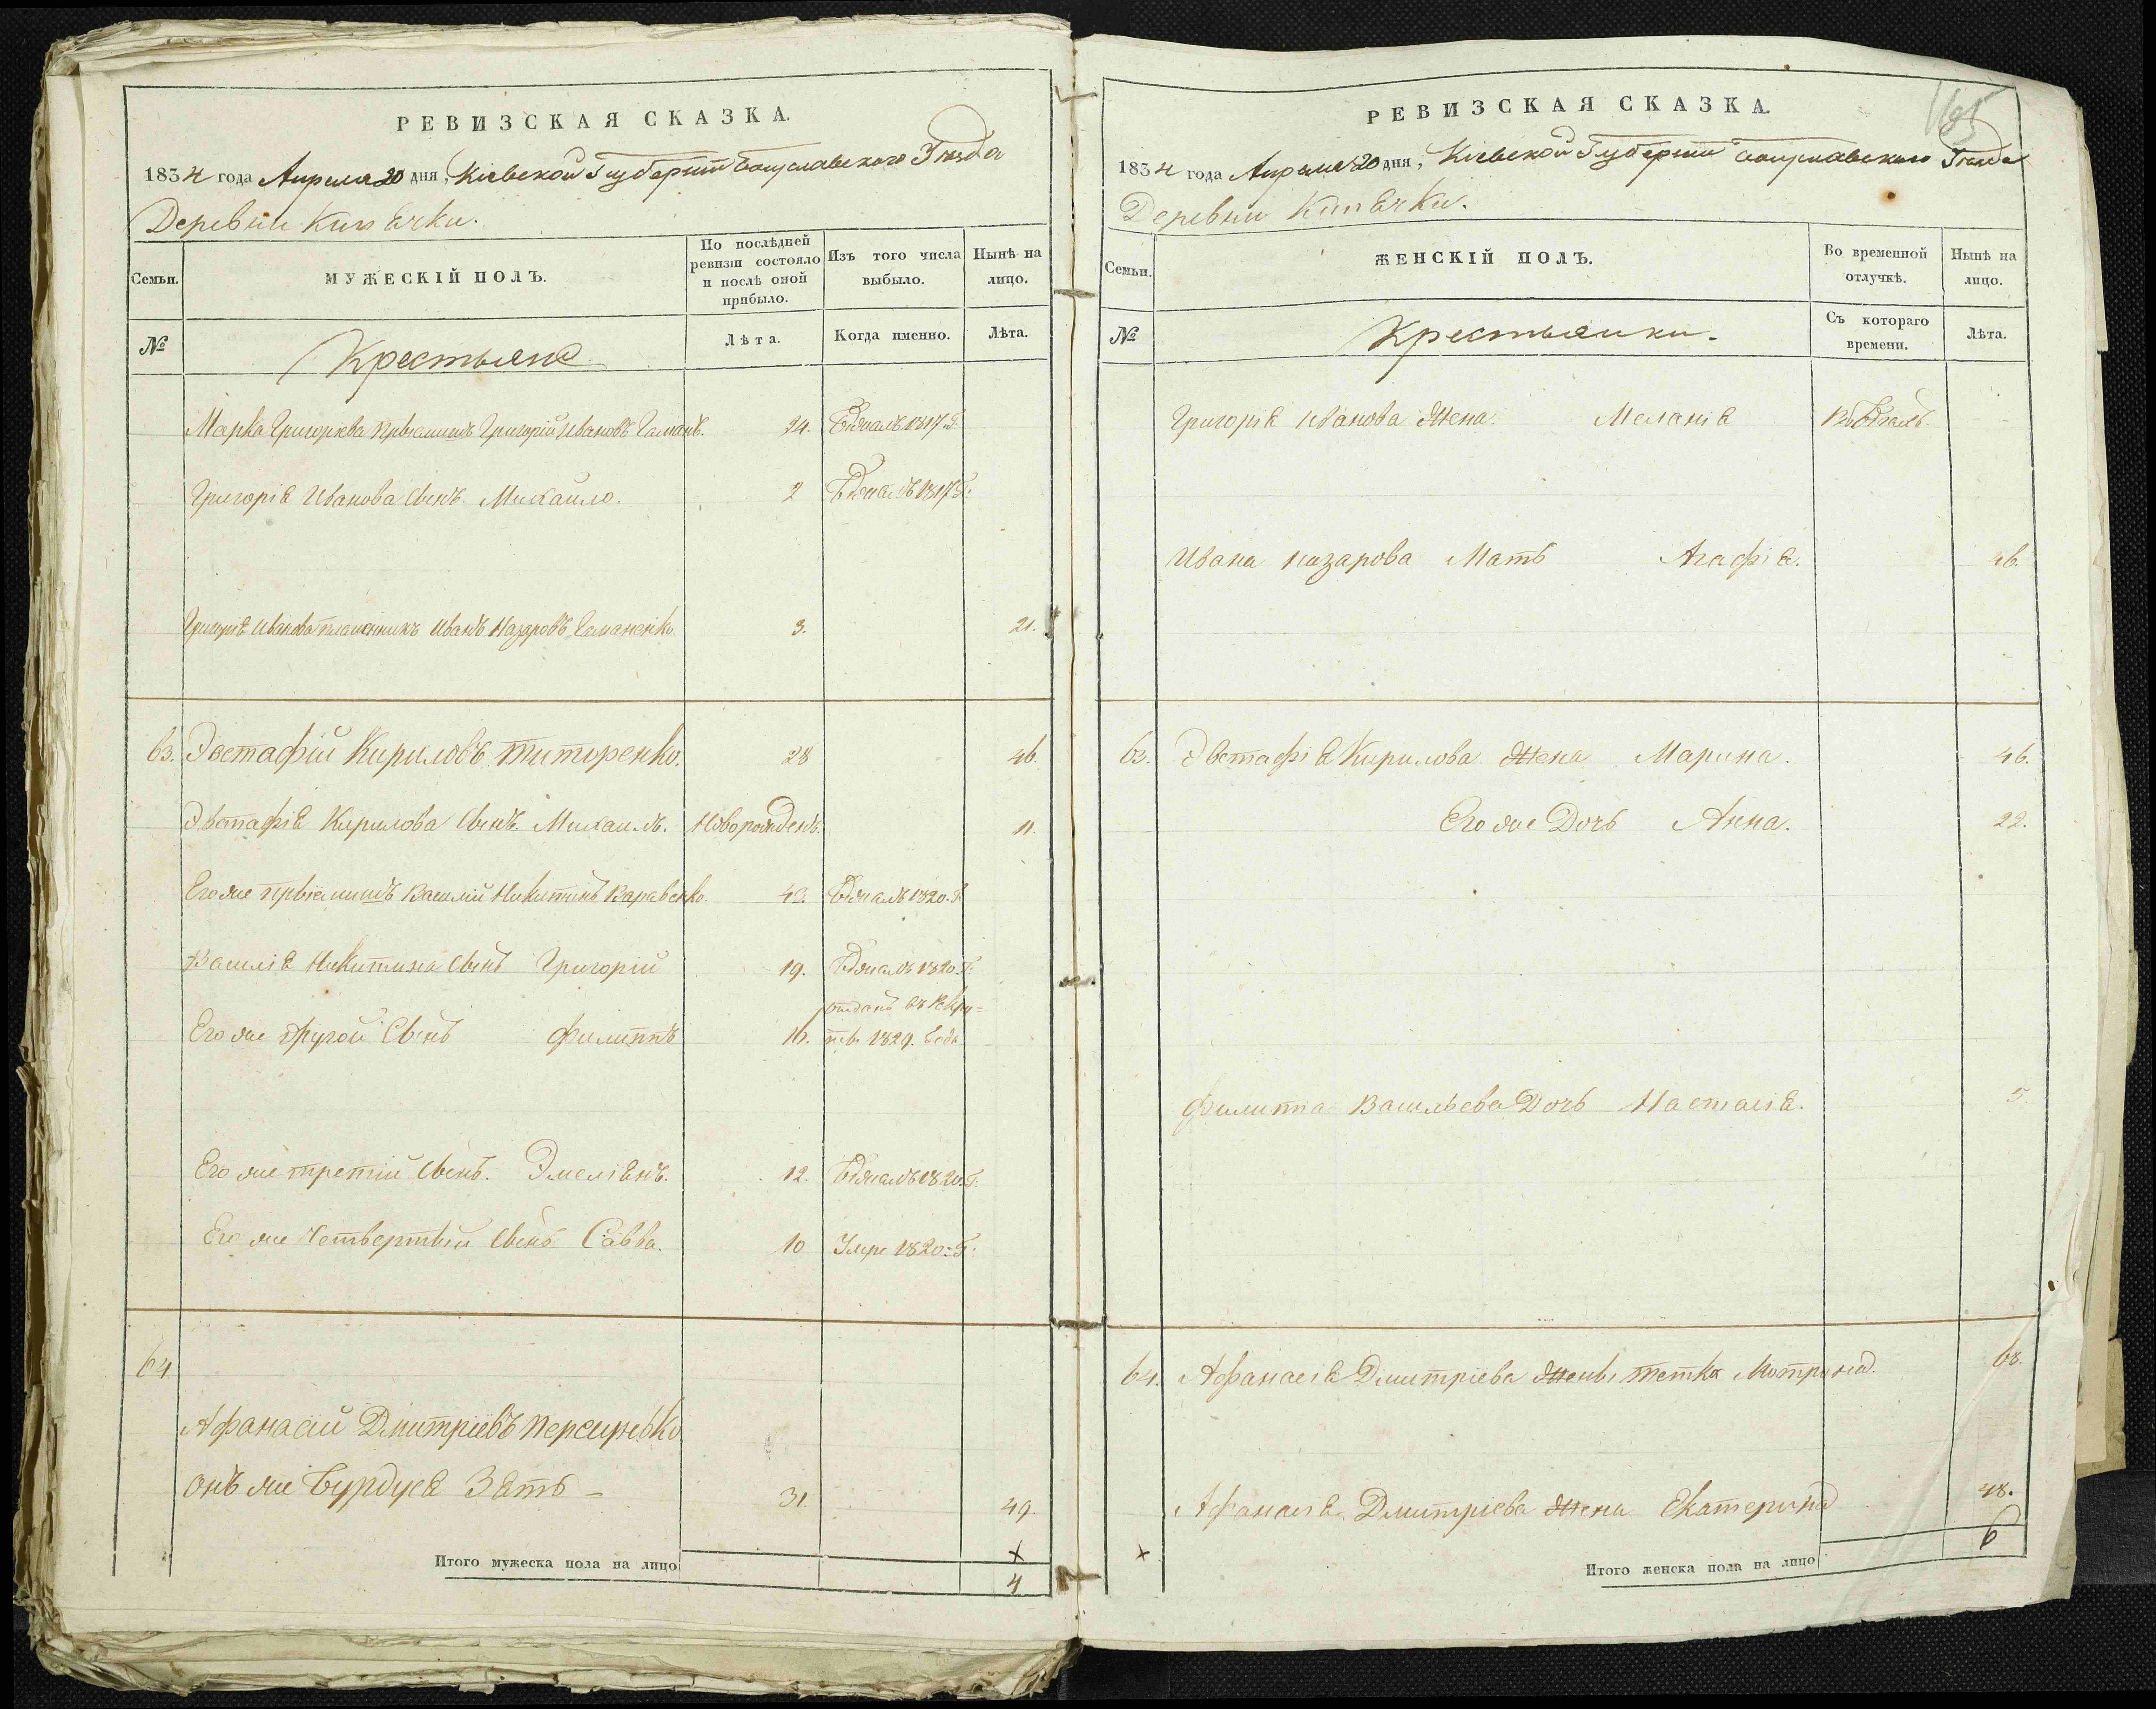 РЕВИЗСКАЯ СКАЗКА.
1834 года Апреля 20 дня, Кіевской Губерніи Богуславского Уезда
Деревни Кипячки.
Семьи.
МУЖЕСКІЙ ПОЛЪ.
По послѣдней ревизіи состояло и послѣ оной прибыло.
Изъ того числа выбыло.
Нынѣ на лицо.
№
Крестьяне
Лѣта.
Когда именно.
Лѣта.
Марка Григорієва Пріемышъ Григорій Ивановъ 24. 1817. Г.
Григорія Иванова Сынъ. Михайло. 2 1817 Г:
Григорія Иванова племянникъ Иванъ Назаровъ 3. 21.
63. Эвстафій Кириловъ Титоренко. 28 46
Эвстафія Кирилова Сынъ Михаилъ. Новорожденъ. 11.
Его же Пріемышъ Василій Никитинъ 1820. Г
Василія Никитина Сынъ Григорій 19. 1820. Г.
Его же другой Сынъ Филиппъ 16. отданъ въ Рекру=
ты 1829. Года
Его же третій Сынъ. Эмеліянъ. 12. 1820. Г.
Его же Четвертый Сынъ Савва. 10 Умре 1820: Г:
64
Афанасій Дмитріевъ
онъ же Зять – 31. 49.
Итого мужеска пола на лицо 4
РЕВИЗСКАЯ СКАЗКА.
1834 года Апреля 20 дня, Кіевской Губерніи Богуславского Уезда
Деревни Кипячки.
Семьи.
ЖЕНСКІЙ ПОЛЪ.
Во временной отлучкѣ.
Нынѣ на лицо.
№
Крестьянки.
Съ котораго времени.
Лѣта.
Григорія Иванова Жена Меланія
Ивана Назарова Мать Агафія. 46.
63. Эвстафія Кирилова Жена Марина. 46.
Его же Дочь Анна. 22.
Филиппа Васильева Дочь Настасія. 5
64. Афанасія Дмитріева Жены тетка Мотрона. 68.
Афанасія Дмитріева Жена Екатерина 48.
Итого женска пола на лицо 6